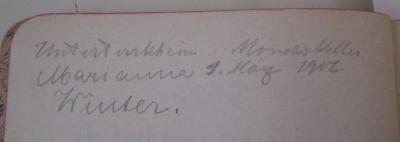 Untertürkheim Mönchskeller
Marianna 1. May 1906
Winter.